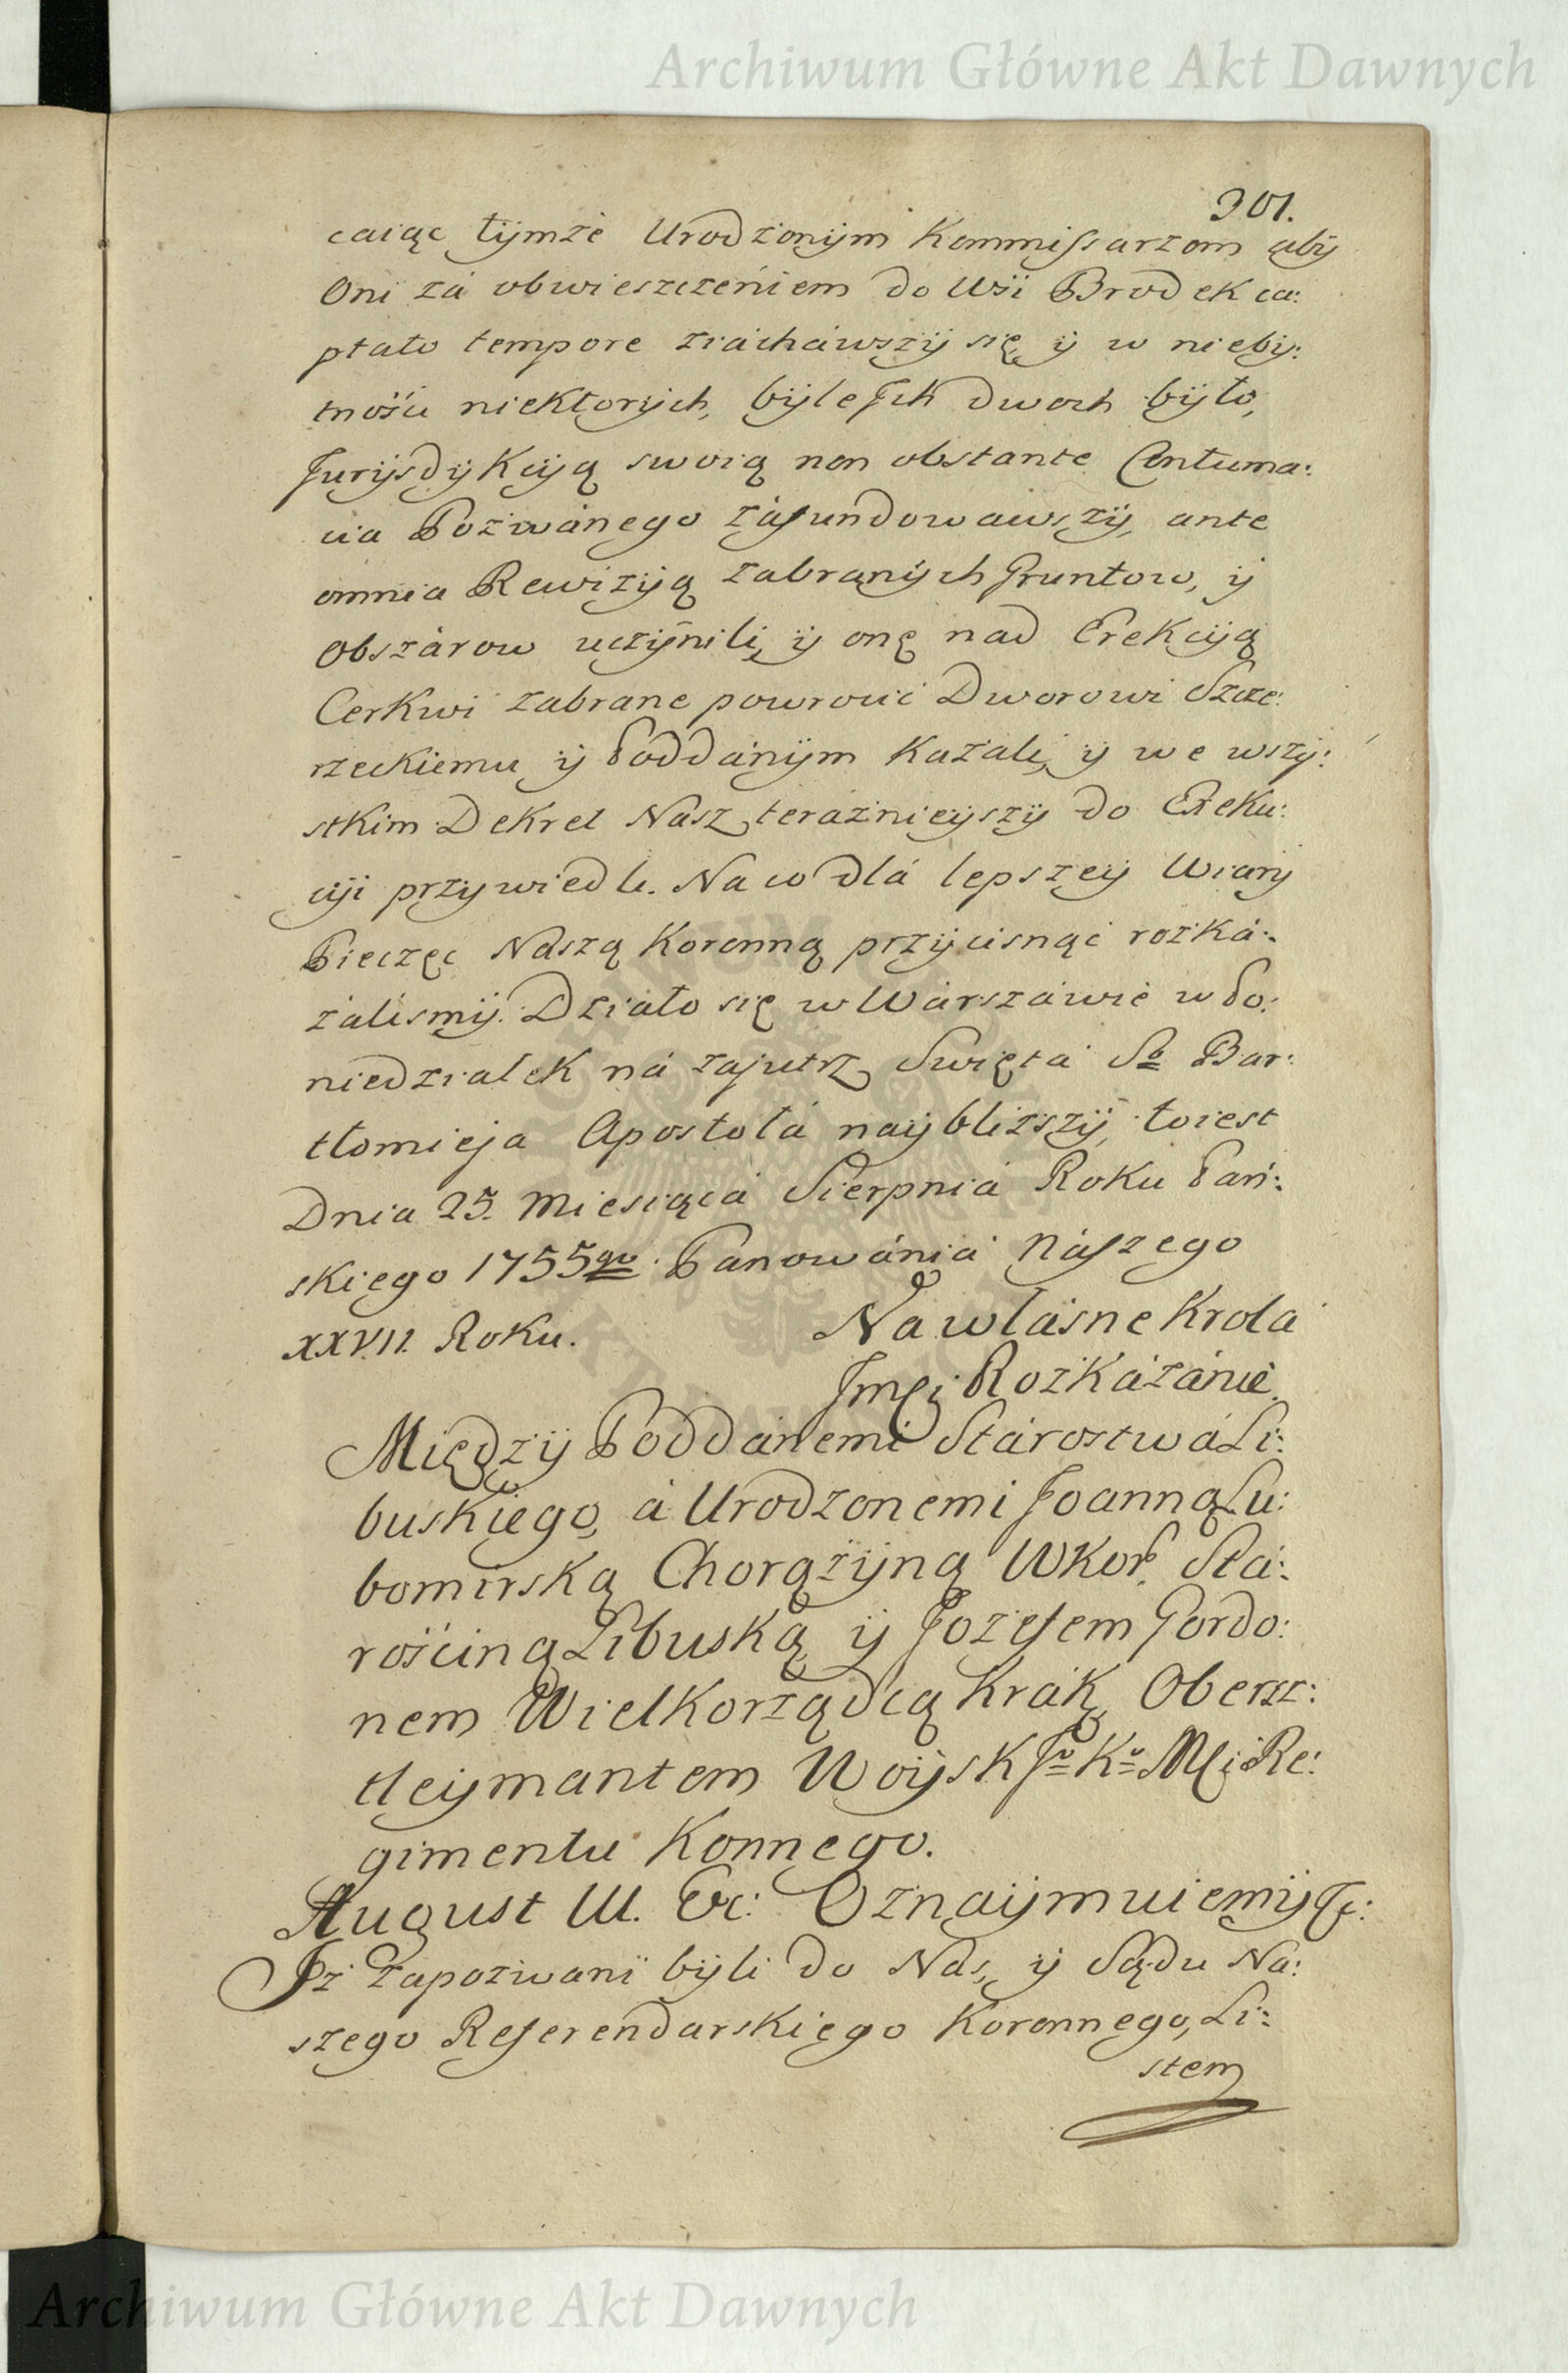 Archiwum Główne Akt Dawnych
301.
caiąc tymże Urodzonym Kommissarzom aby
Oni zá obwieszczeniem do Wsi Brodek ca:
ptato tempore ziáchawszy się, y w nieby:
tnośći niektorych, byle Jch dwoch było,
Jurysdykcyą swoią non obstante Contuma:
cia Pozwánego záfundowawszy, ante
omnia Rewizyą zabranych Gruntow, y
Obszárow uczynili, y onę nad Erekcyą
Cerkwi zabrane powroćić Dworowi Szcze:
rzeckiemu y Poddánym Kazali, y we wszy:
stkim Dekret Nász teráznieyszy do Exeku:
cyi przywiedli. Na co dlá lepszey Wiary
Pieczęc Naszą Koronną przycisnąć rozká:
zálismy. Działo się w Wárszáwie w Po:
niedziałek ná zajutrz Swięta Sgo Bar:
tłomieja Apostołá naybliższy, toiest
Dnia 25. Miesiącá Sierpniá Roku Pań:
skiego 1755go. Panowánia Nászego
XXVII. Roku.
Na własne Krola
Jmći Rozkázánie.
Między Poddánemi Stárostwá Li:
buskiego, á Urodzonemi Joanną Lu:
bomirską Chorążyną WKor. Stá:
rośćiną Libuską, y Jozefem Gordo:
nem Wielkorządcą Krák, Obersz:
tleymantem Woysk Jo Ko Mći Re:
gimentu Konnego.
August III. Etc: Oznaymuiemy Etc:
Jż Zapozwani byli do Nas, y Sądu Na:
szego Referendarskiego Koronnego, Li:
stem
Archiwum Główne Akt Dawnych